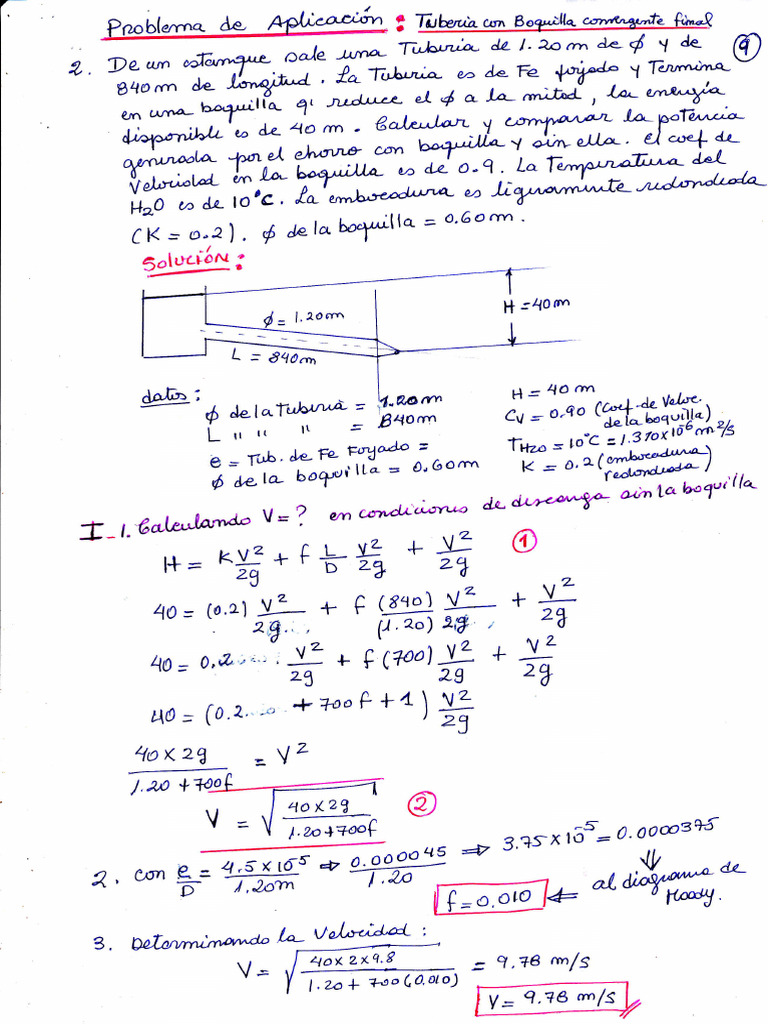 Problema de Aplicación: Tubería con Boquilla convergente final
9
2. De un estanque sale una Tubería de 1.20m de ϕ y de
840m de longitud. La Tubería es de Fe forjado y Termina
en una boquilla q' reduce el ϕ a la mitad, la energía
disponible es de 40 m. Calcular y comparar la potencia
generada por el chorro con boquilla y sin ella. El coef de
Velocidad en la boquilla es de 0.9. La Temperatura del
H2O es de 10°C. La embocadura es ligeramente redondeada
(K = 0.2). ϕ de la boquilla = 0.60m.
Solución:
ϕ = 1.20m
L = 840m
H = 40m
datos:
ϕ de la Tubería = 1.20m
L " " " = 840m
e = Tub. de Fe Foyado =
ϕ de la boquilla = 0.60m
H = 40m
Cv = 0.90 (Coef. de Veloc. de la boquilla)
TH2O = 10°C = 1.310x10^-6 m²/s
K = 0.2 (embocadura redondeada)
I-1. Calculando V=? en condiciones de descarga sin la boquilla
H = K V²/2g + f L/D V²/2g + V²/2g ①
40 = (0.2) V²/2g + f (840)/(1.20) V²/2g + V²/2g
40 = 0.2 V²/2g + f(700) V²/2g + V²/2g
40 = (0.2 + 700f + 1) V²/2g
40x2g/1.20+700f = V²
V = √40x2g/1.20+700f ②
2. con e/D = 4.5x10^-5/1.20m ⇒ 0.000045/1.20 ⇒ 3.75x10^-5 = 0.0000375
f = 0.010 ⇐ al diagrama de Moody.
3. Determinando la Velocidad:
V = √40x2x9.8/1.20+700(0.010) = 9.78 m/s
V = 9.78 m/s